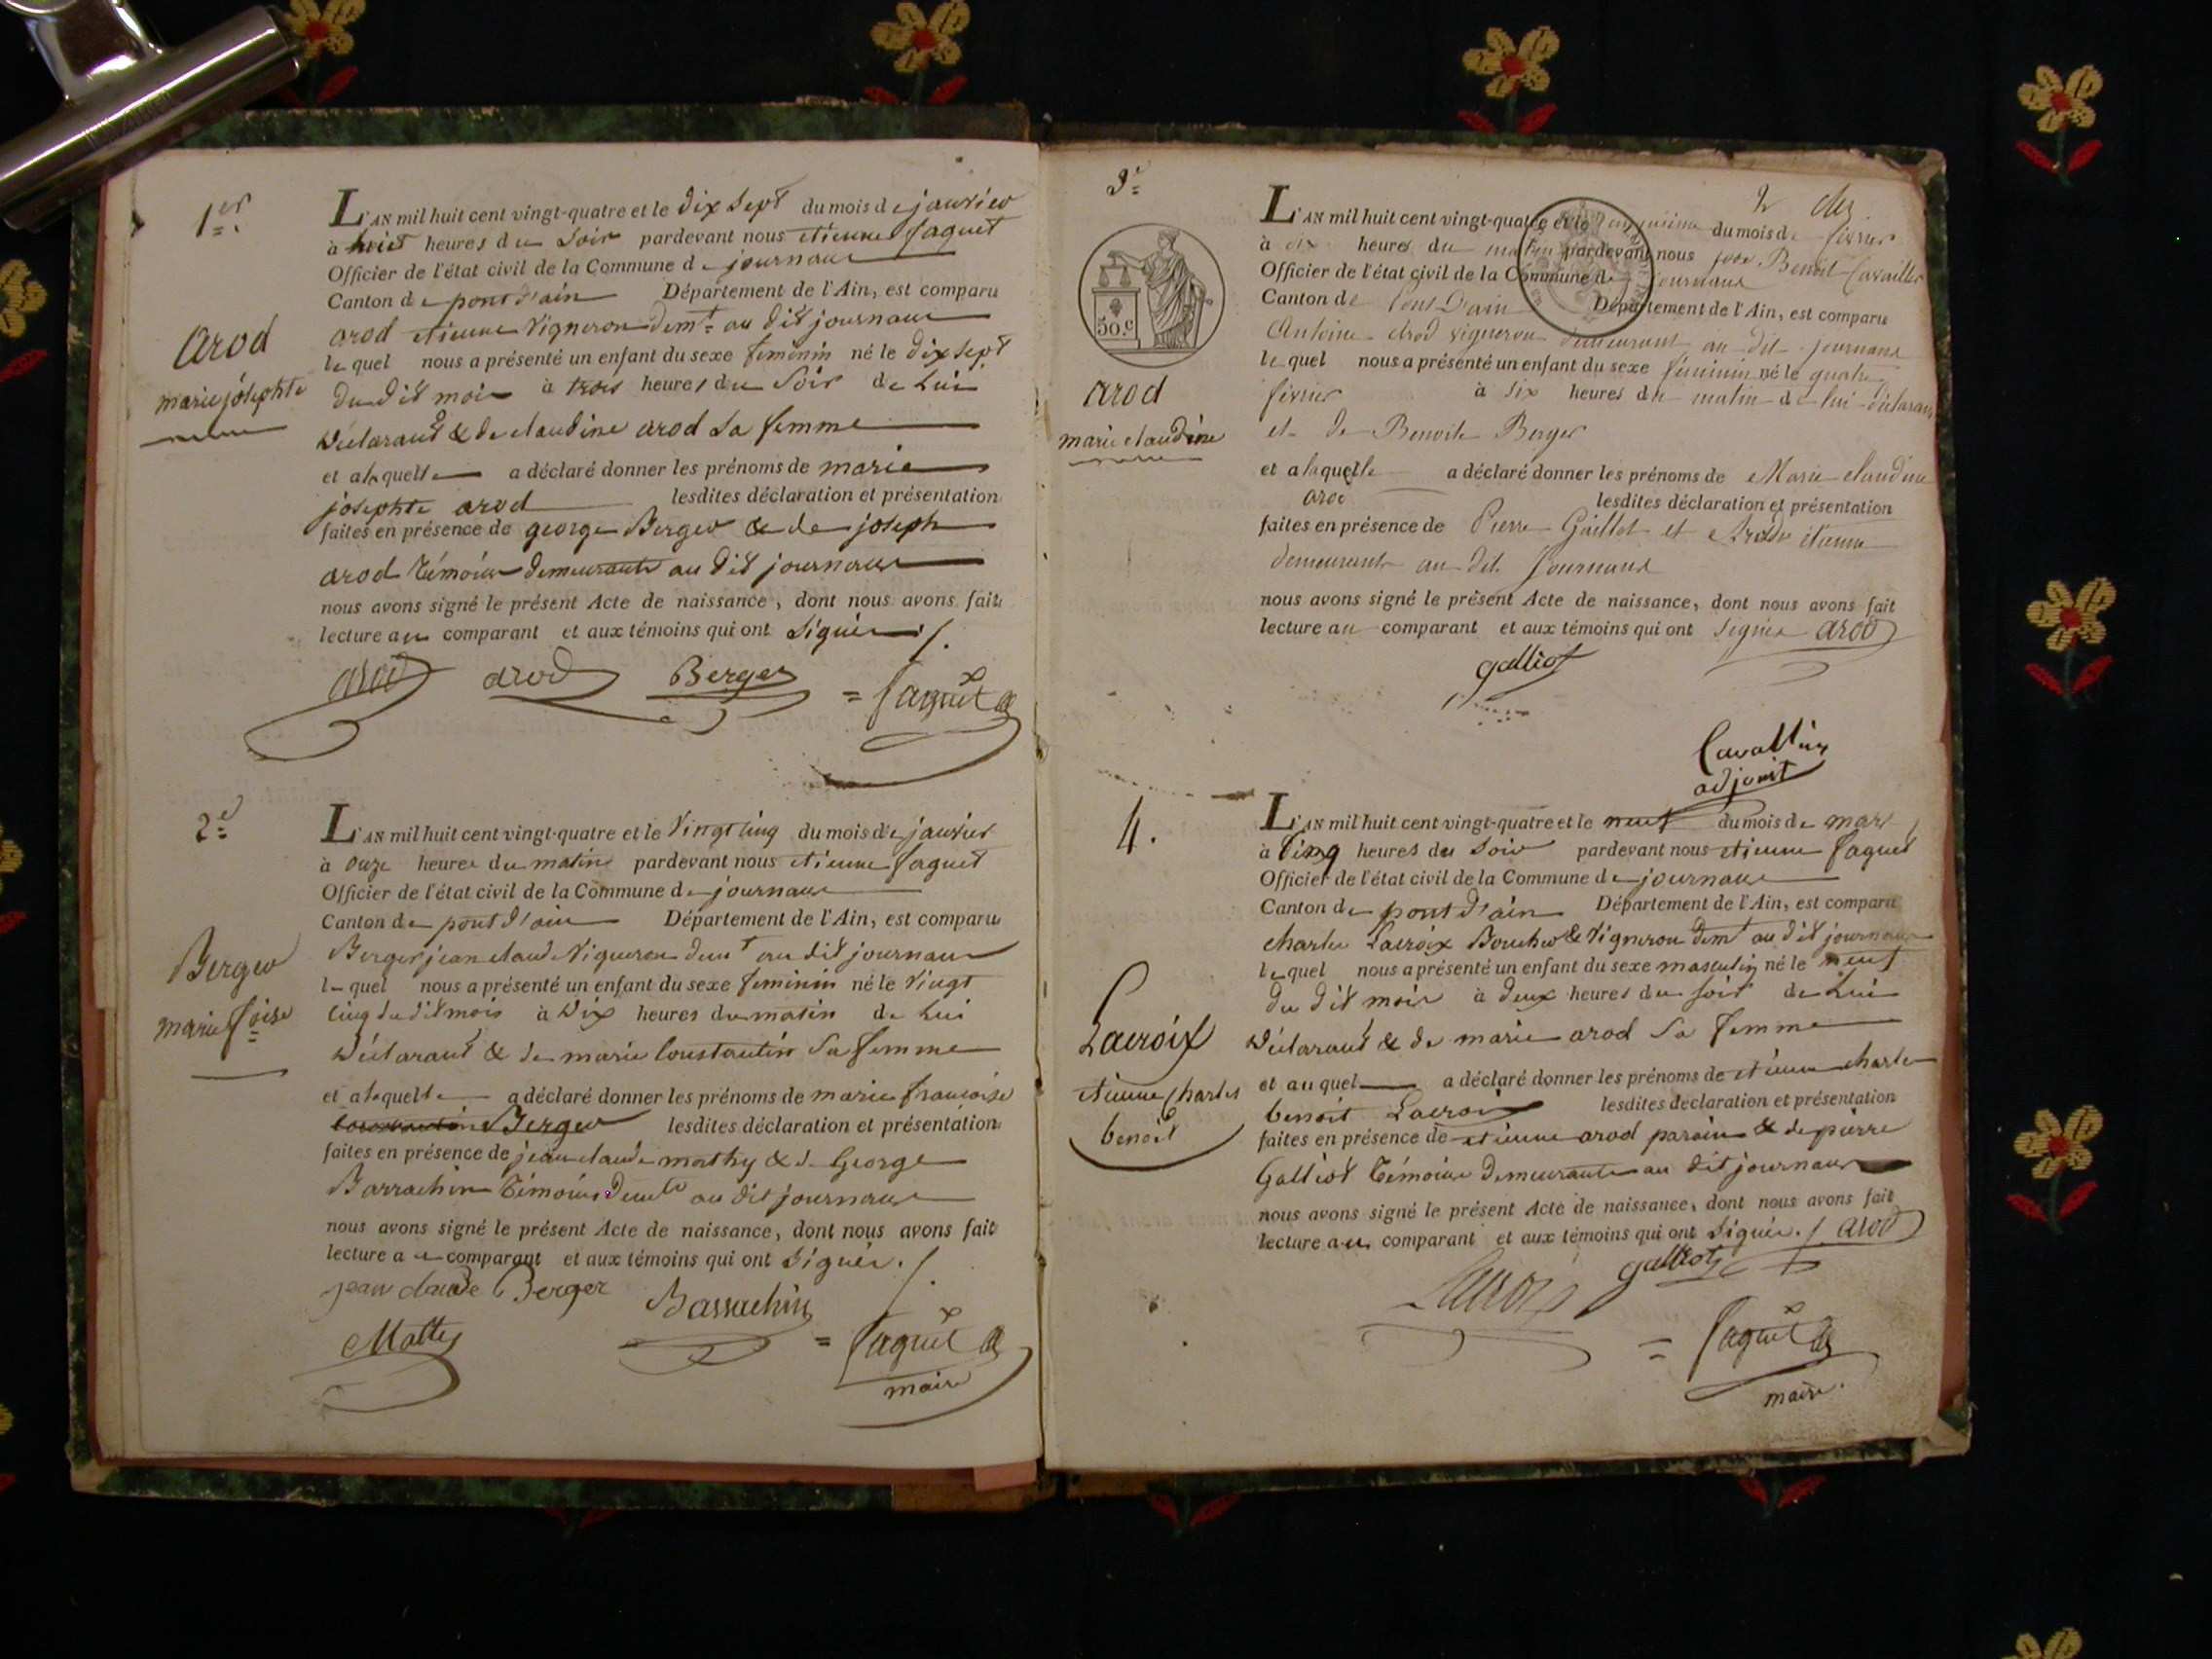 1er
Arod
marie josephte
L'AN mil huit cent vingt-quatre et le dix sept du mois de janvier
à huit heures du Soir pardevant nous etienne faguet
Officier de l'état civil de la Commune de journans
Canton de pont d'ain Département de l'Ain, est comparu
arod etienne Vigneron demt au dit journans
le quel nous a présenté un enfant du sexe feminin né le dix sept
du dit mois à trois heures du Soir de Lui
Déclarant & de claudine arod Sa femme
et a laquelle a déclaré donner les prénoms de marie
josephte arod lesdites déclaration et présentation
faites en présence de george Berger & de joseph
arod témoins demeurants au dit journans
nous avons signé le présent Acte de naissance, dont nous avons fait
lecture au comparant et aux témoins qui ont Signés ./.
arod arod Berger = faguet
2e
Berger
marie foise
L'AN mil huit cent vingt-quatre et le Vingt cinq du mois de janvier
à onze heures du matin pardevant nous etienne faguet
Officier de l'état civil de la Commune de journans
Canton de pont d'ain Département de l'Ain, est comparu
Berger jean claude Vigneron demt au dit journans
le quel nous a présenté un enfant du sexe feminin né le Vingt
cinq du dit mois à Dix heures du matin de Lui
Déclarant & de marie Constantin Sa femme
et a laquelle a déclaré donner les prénoms de marie francoise
Berger lesdites déclaration et présentation
faites en présence de jean claude mathy & de George
Barrachin témoins demts au dit journans
nous avons signé le présent Acte de naissance, dont nous avons fait
lecture au comparant et aux témoins qui ont Signés ./.
jean claude Berger Barrachin
= faguet
maire
3e
50.c
arod
marie claudine
L'AN mil huit cent vingt-quatre et le du mois de février
à dix heures du matin pardevant nous Benoit Cavallier
Officier de l'état civil de la Commune de journans
Canton de Pont D'ain Département de l'Ain, est comparu
Antoine Arod vigneron demeurant au dit journans
le quel nous a présenté un enfant du sexe féminin né le quatre
février à six heures du matin de lui déclarant
et de Benoite Berger
et a laquelle a déclaré donner les prénoms de Marie claudine
arod lesdites déclaration et présentation
faites en présence de Pierre Galliot et etienne
demeurants au dit Journans
nous avons signé le présent Acte de naissance, dont nous avons fait
lecture au comparant et aux témoins qui ont signés arod
galliot
Cavallier
adjoint
4.
Lacroix
etienne charles
benoit
L'AN mil huit cent vingt-quatre et le neuf du mois de mars
à Cinq heures du Soir pardevant nous etienne faguet
Officier de l'état civil de la Commune de journans
Canton de pont d'ain Département de l'Ain, est comparu
charles Lacroix Boucher & Vigneron demt au dit journans
le quel nous a présenté un enfant du sexe masculin né le neuf
du dit mois à deux heures du soir de Lui
Déclarant & de marie arod Sa femme
et au quel a déclaré donner les prénoms de etienne charles
benoit Lacroix lesdites déclaration et présentation
faites en présence de etienne arod parain & de pierre
Galliot témoins demeurants au dit journans
nous avons signé le présent Acte de naissance, dont nous avons fait
lecture au comparant et aux témoins qui ont Signés ./. arod
Lacroix galliot
= faguet
maire.